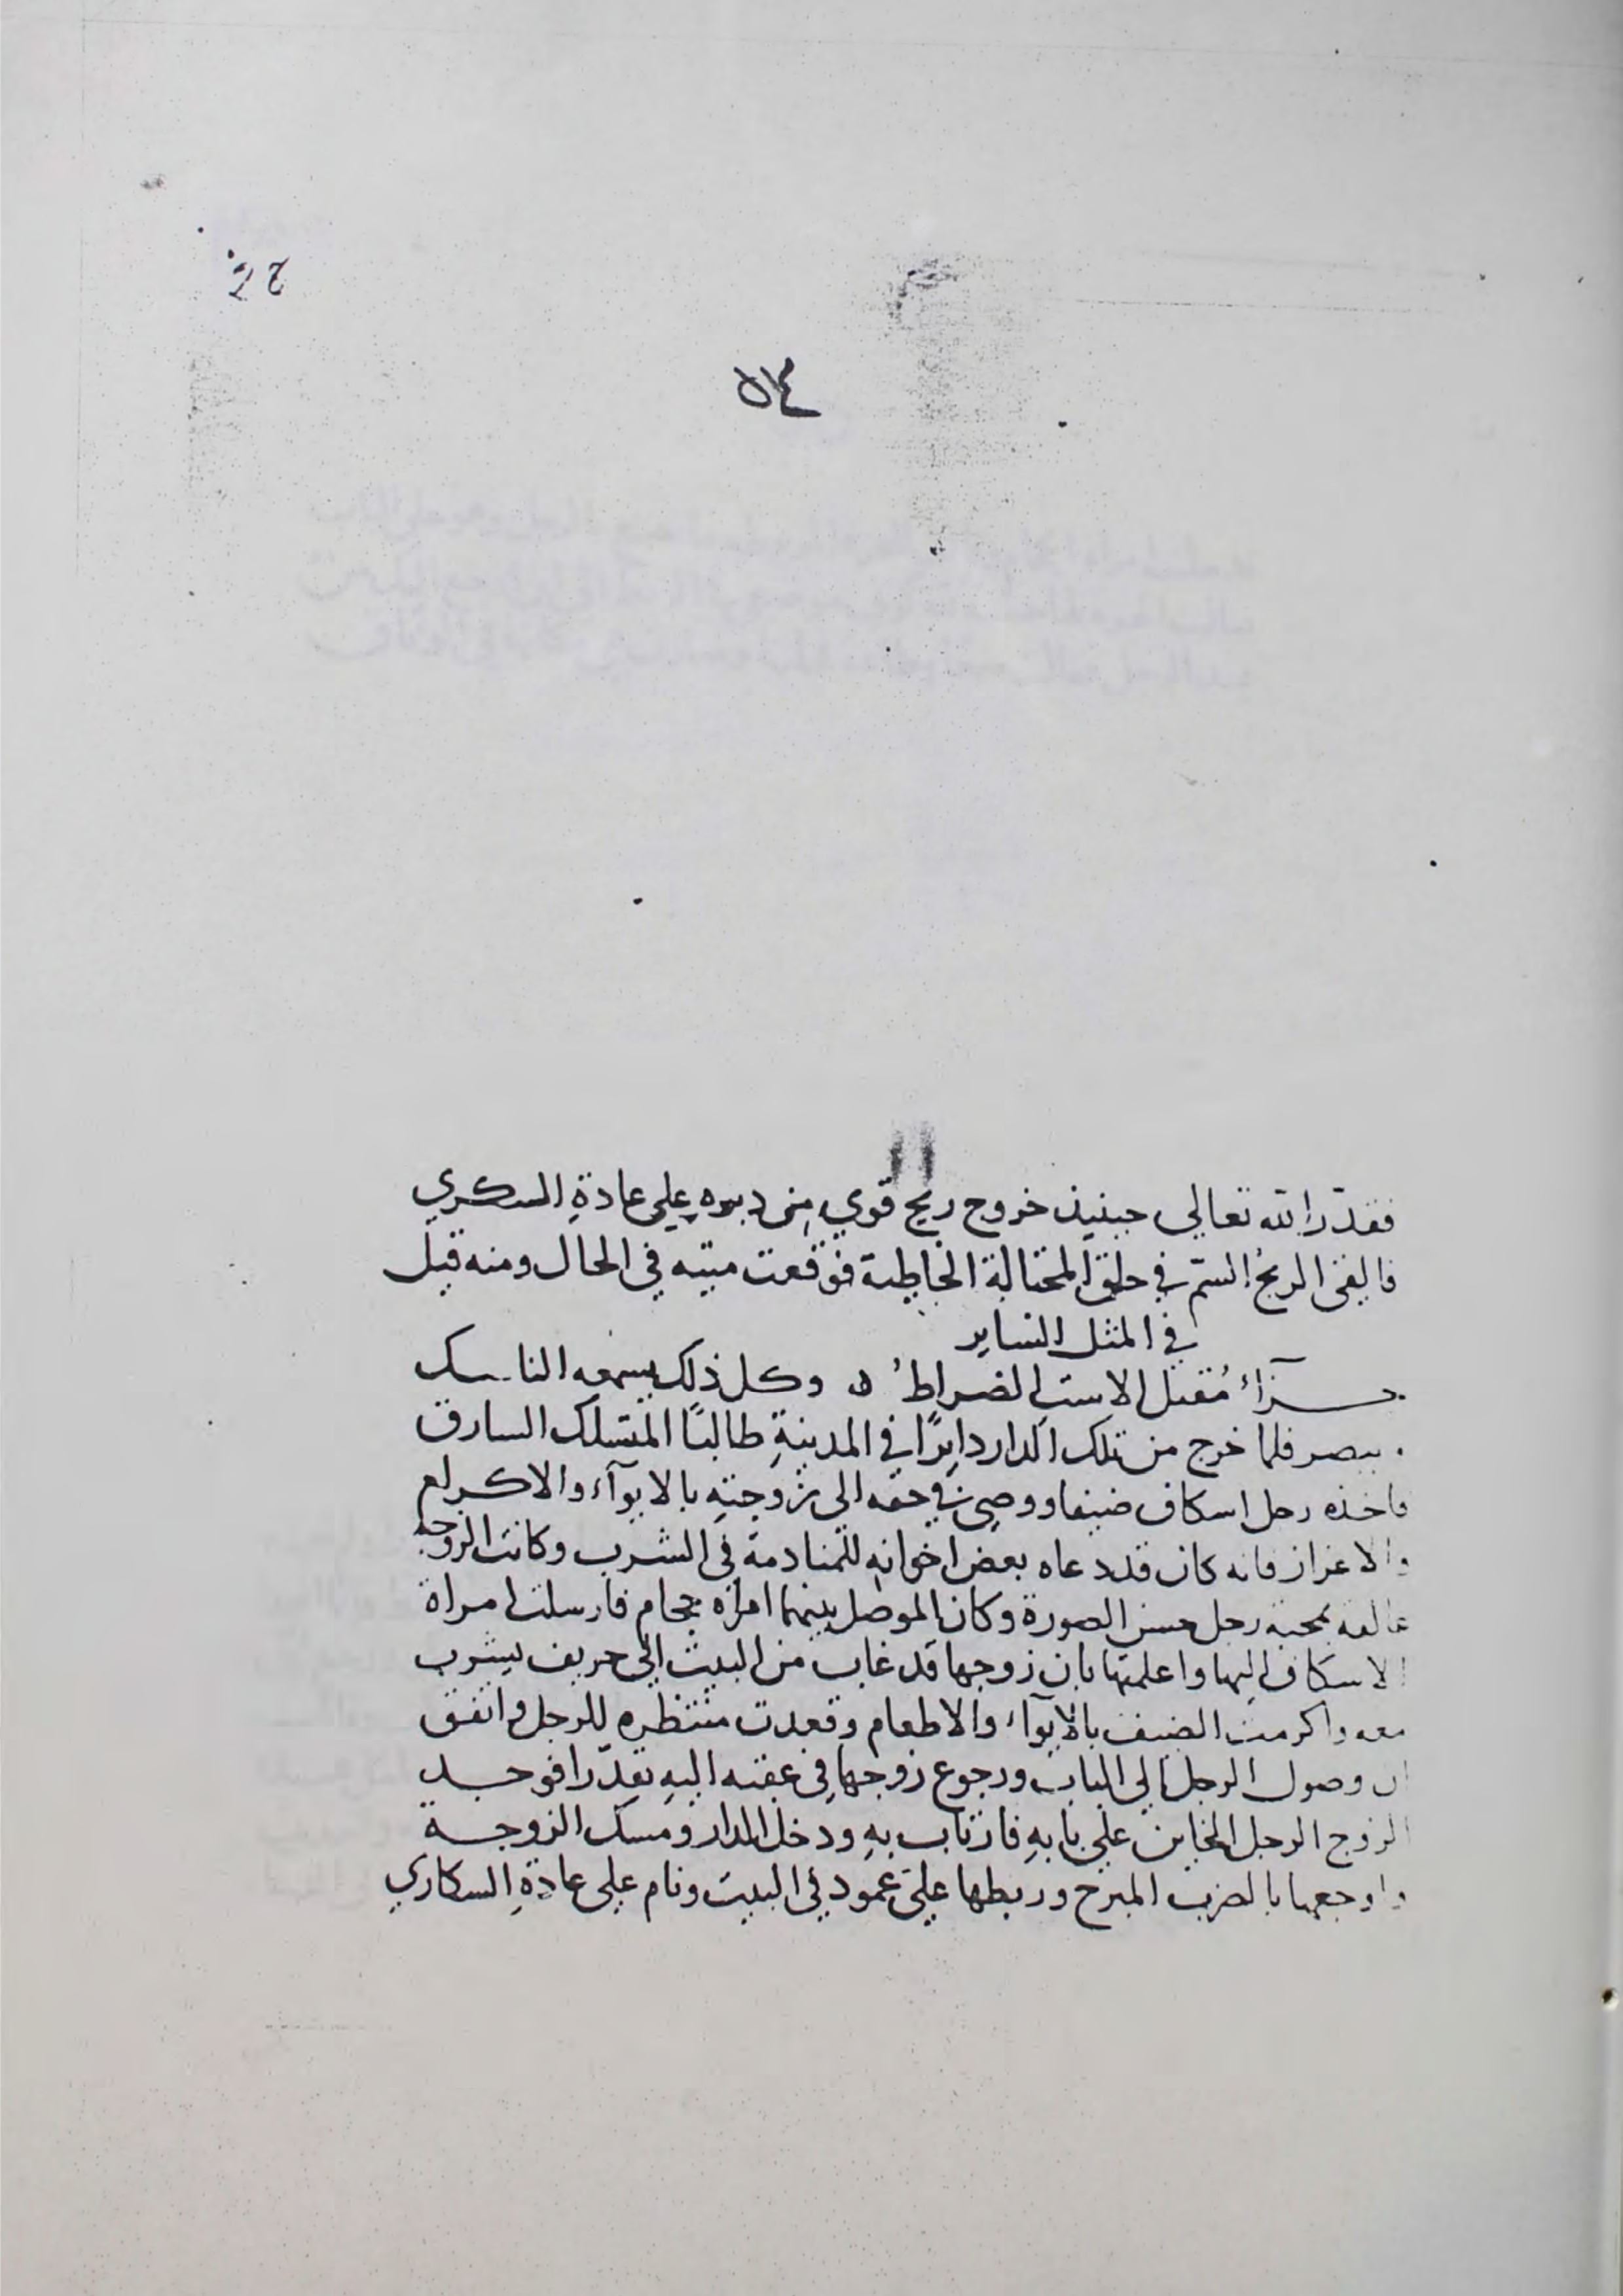 ٥٤
فقدّر الله تعالي حينيذ خروج ريح قوي من دبره علي عادة السكري
فالقى الريحُ السمّ في حلق المحتالة الخاطية فوقعت ميته في الحال ومنه قيل
في المثل الساير
جزآءُ مُقبل الاست الضراطُ ه وكل ذلك يسمعه الناسك
يبصر فلما خرج من تلك الدار دايرًا في المدينةِ طالبًا المتسلك السارق
فاخذه رجل اسكاف ضيفا ووصي في حقه الى زوجتهِ بالايوآء والاكرام
والاعزاز فانه كان قد دعاه بعض اخوانه للمنادمة في الشرب وكانت الزوجة
عالقه بمحبة رجل حسن الصورة وكان الموصل بينهما امراه حجام فارسلت امراة
الاسكاف اليها واعلمتها بان زوجها قد غاب من البيت الي حريف يشرب
معه واكرمت الضيف بالايوآء والاطعام وقعدت منتظره للرجل واتفق
ان وصول الرجل الي الباب ورجوع زوجها في عقبه اليهِ تقدّرا فوجد
الزوج الرجل الخاين علي بابهِ فارتاب بهِ ودخل الدار ومسك الزوجة
واوجعها بالضرب المبرح وربطها علي عمود في البيت ونام علي عادةِ السكاري